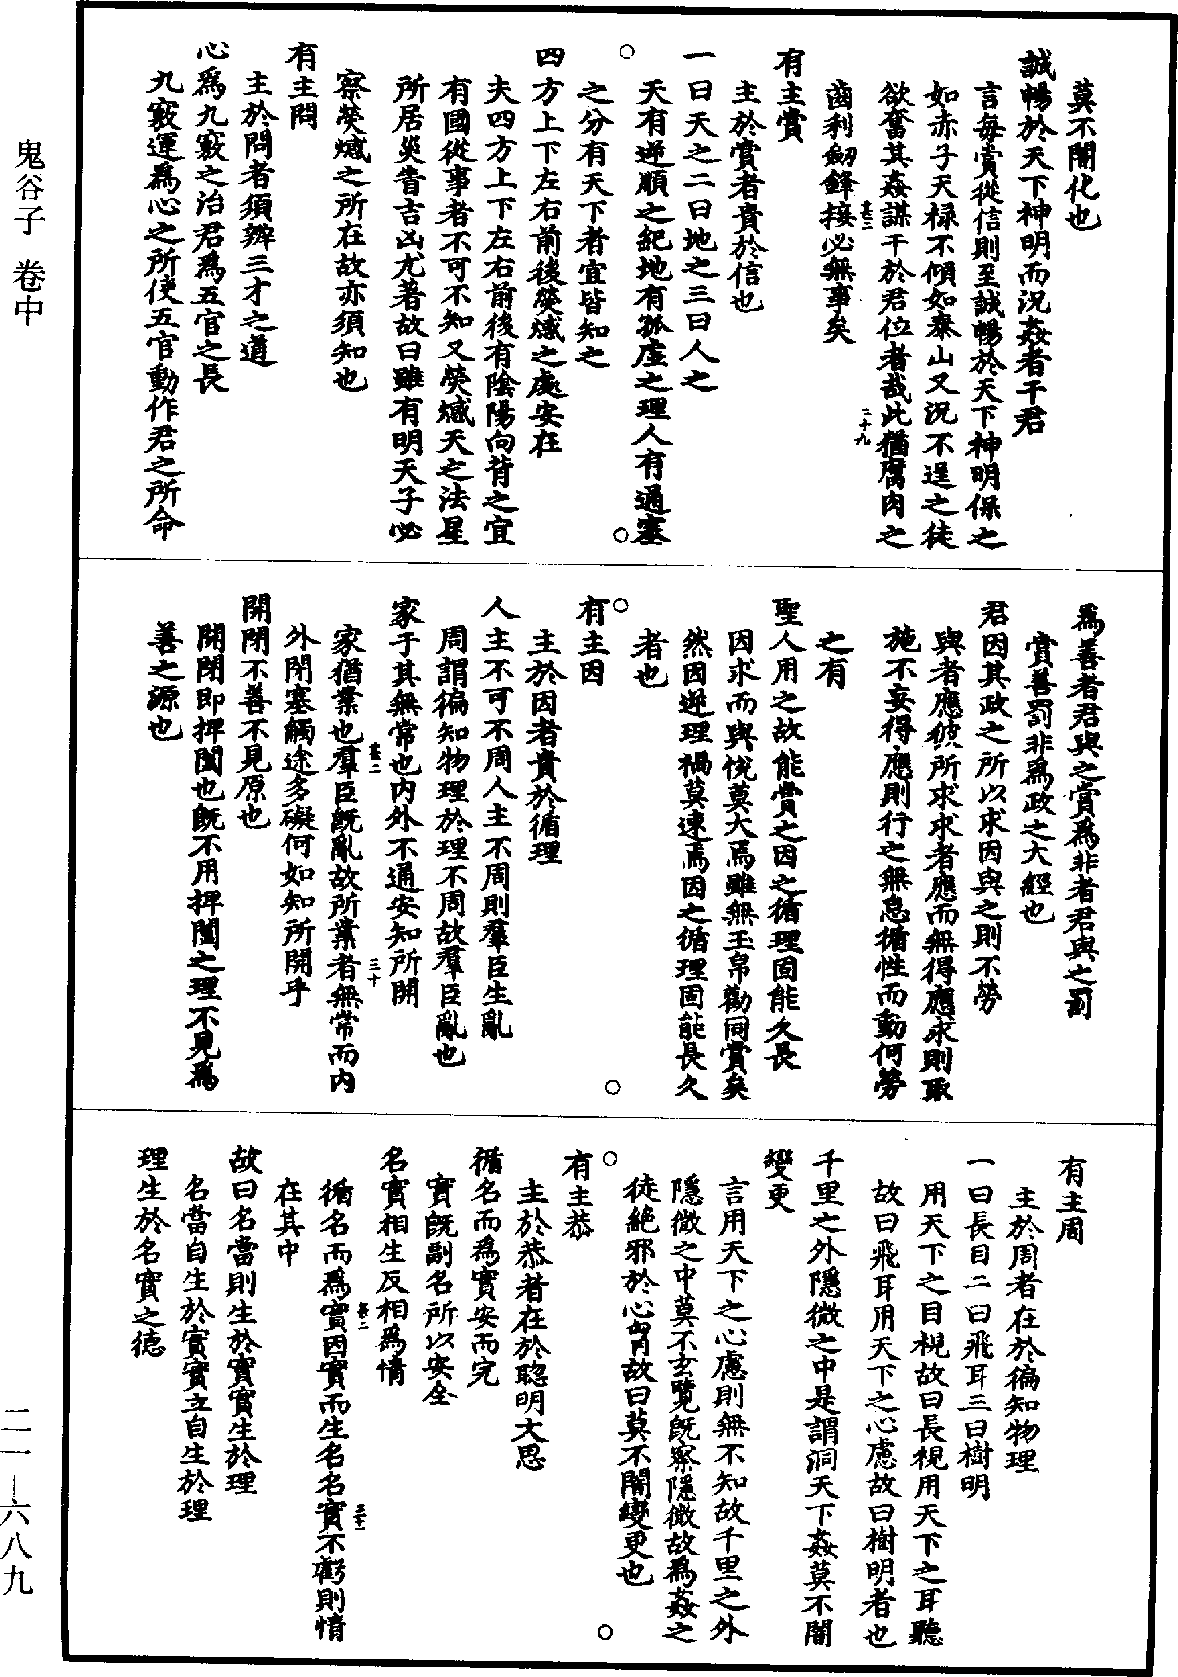 莫不闇化也
誠暢於天下神明而況姦者干君
言每賞從信則至誠暢於天下神明保之
如赤子天祿不傾如泰山又況不逞之徒
欲奮其姦謀干於君位者哉此猶腐肉之
齒利劒鋒接必無事矣
有主賞
主於賞者貴於信也
一曰天之二曰地之三曰人之
天有逆順之紀地有孤虛之理人有通塞
之分有天下者宜皆知之
四方上下左右前後熒惑之處安在
夫四方上下左右前後有陰陽向背之宜
有國從事者不可不知又熒惑天之法星
所居災眚吉凶尤著故曰雖有明天子必
察熒惑之所在故亦須知也
有主問
主於問者須辨三才之道
心爲九竅之治君爲五官之長
九竅運爲心之所使五官動作君之所命
爲善者君與之賞爲非者君與之罰
賞善罰非爲政之大經也
君因其政之所以求因與之則不勞
與者應彼所求求者應而無得應求則取
施不妄得應則行之無怠循性而動何勞
之有
聖人用之故能賞之因之循理固能久長
因求而與悅莫大焉雖無玉帛勸同賞矣
然因逆理禍莫速焉因之循理固能長久
者也
有主因
主於因者貴於循理
人主不可不周人主不周則羣臣生亂
周謂徧知物理於理不周故羣臣亂也
家于其無常也內外不通安知所開
家猶業也羣臣旣亂故所業者無常而內
外閉塞觸途多礙何如知所開乎
開閉不善不見原也
開閉即捭闔也旣不用捭闔之理不見爲
善之源也
有主周
主於周者在於徧知物理
一曰長目二曰飛耳三曰樹明
用天下之目視故曰長視用天下之耳聽
故曰飛耳用天下之心慮故曰樹明者也
千里之外隱微之中是謂洞天下姦莫不闇
變更
言用天下之心慮則無不知故千里之外
隱微之中莫不玄覽旣察隱微故爲姦之
徒絕邪於心胷故曰莫不闇變更也
有主恭
主於恭者在於聦明大思
循名而爲實安而完
實旣副名所以安全
名實相生反相爲情
循名而爲實因實而生名名實不虧則情
在其中
故曰名當則生於實實生於理
名當自生於實實立自生於理
理生於名實之德
鬼谷子 卷中
二一—六八九
二十九
三十
三十一